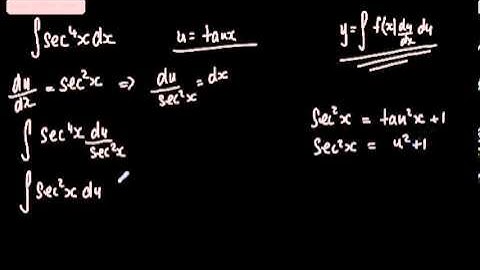 ∫ sec⁴x dx    u = tanx    y = ∫ f(x) du/dx du
du/dx = sec²x ⇒ du/sec²x = dx
∫ sec⁴x du/sec²x    sec²x = tan²x + 1
sec²x = u² + 1
∫ sec²x du